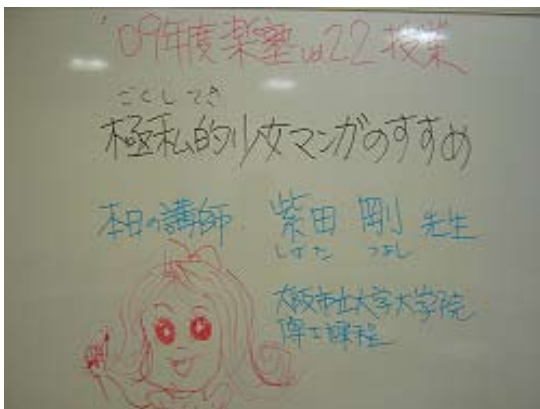 '09年度楽塾 vol.22 授業
ごくしてき
極私的少女マンガのすすめ
本日の講師 紫田 剛 先生
しばた つよし
大阪市立大学大学院
博士課程